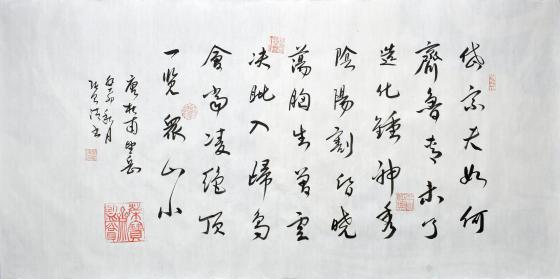 岱宗夫如何
齊魯青未了
造化鍾神秀
陰陽割昏曉
蕩胸生曾雲
決眥入歸鳥
會當凌絕頂
一览眾山小
唐杜甫望岳
秋月